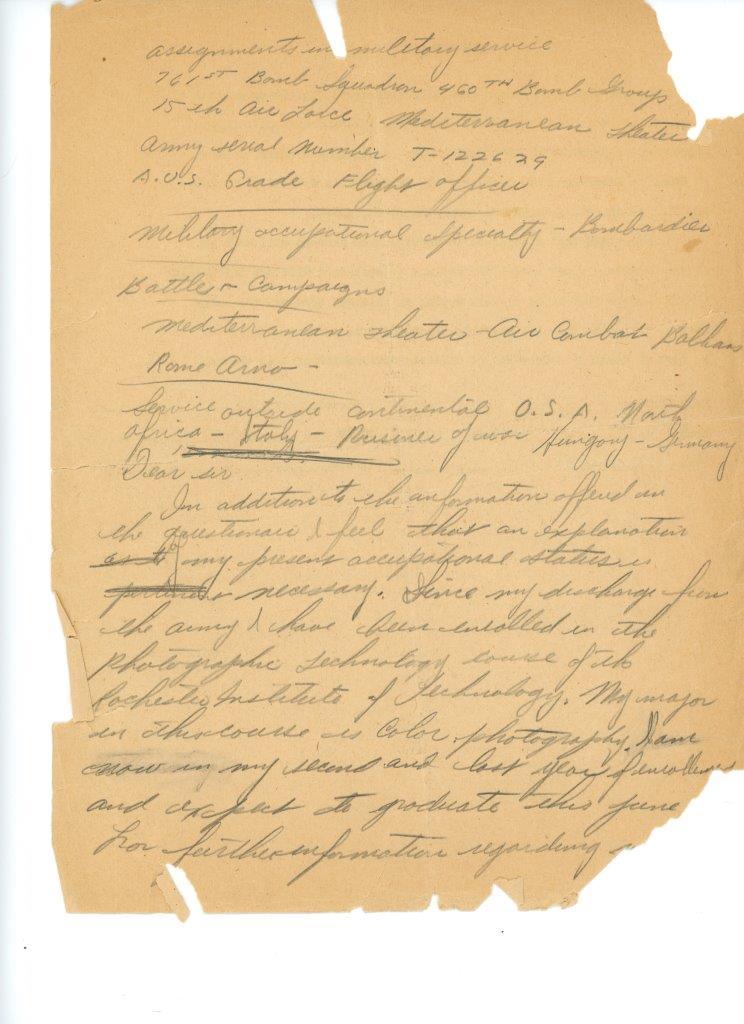 assignments in military service
761ST Bomb Squadron 460TH Bomb Group
15th Air Force Mediterranean theater
Army serial Number T-122629
A.U.S. Grade Flight officer
Military occupational specialty - Bombardier
Battle & Campaigns
Mediterranean theater - Air Combat Balkans
Rome Arno -
Service outside continental U.S.A. North
Africa - Italy - Prisoner of war Hungary - Germany
Dear sir
In addition to the information offered in
the questionair I feel that an explanation
as to of my present occupational status is
necessary. Since my discharge from
the army I have been enrolled in the
Photographic Technology course of the
Rochester Institute of Technology. My major
in this course is Color photography. I am
now in my second and last year of enrollment
and expect to graduate this June
For further information regarding